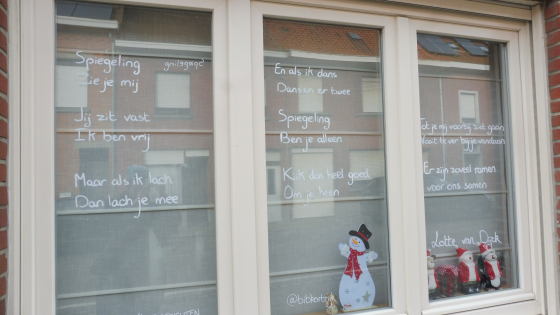 Spiegeling
Zie je mij
Jij zit vast
Ik ben vrij
Maar als ik lach
Dan lach je mee
En als ik dans
Dansen er twee
Spiegeling
Ben je alleen
Kijk dan heel goed
Om je heen
Tot je mij voorbij ziet gaan
Nooit te ver bij je vandaan
Er zijn zoveel ramen
voor ons samen
Lotte van Dijk